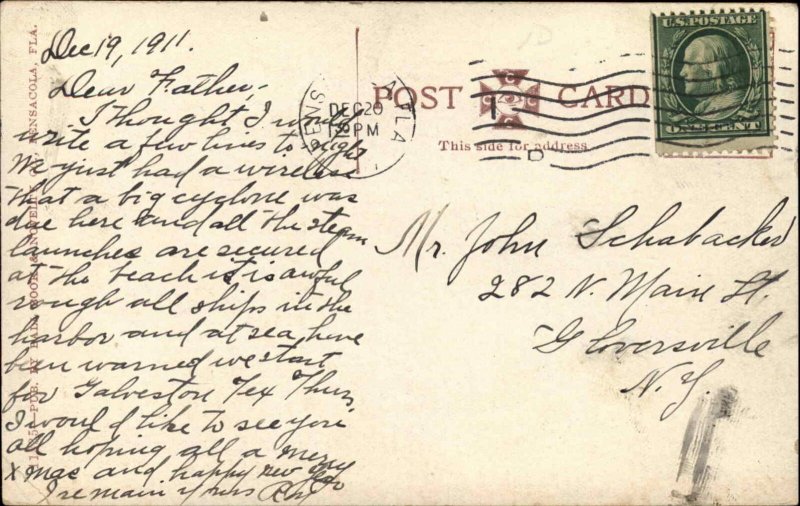 Dec 19, 1911.
Dear Father,-
I thought I would
write a few lines to night
We just had a wireless
that a big cyclone was
due here and all the steam
launches are secured
at the beach it is awful
rough all ships in the
harbor and at sea have
been warned we start
for Galveston Tex Thurs,
I would like to see you
all hoping all a merry
Xmas and happy new year
I remain yours Ray
PENSACOLA, FLA.
DEC 20
PM
FLA
D
POST CARD
This side for address
U.S. POSTAGE
ONE CENT
Mr. John Schabacker
282 N. Main St.
Gloversville
N.Y.